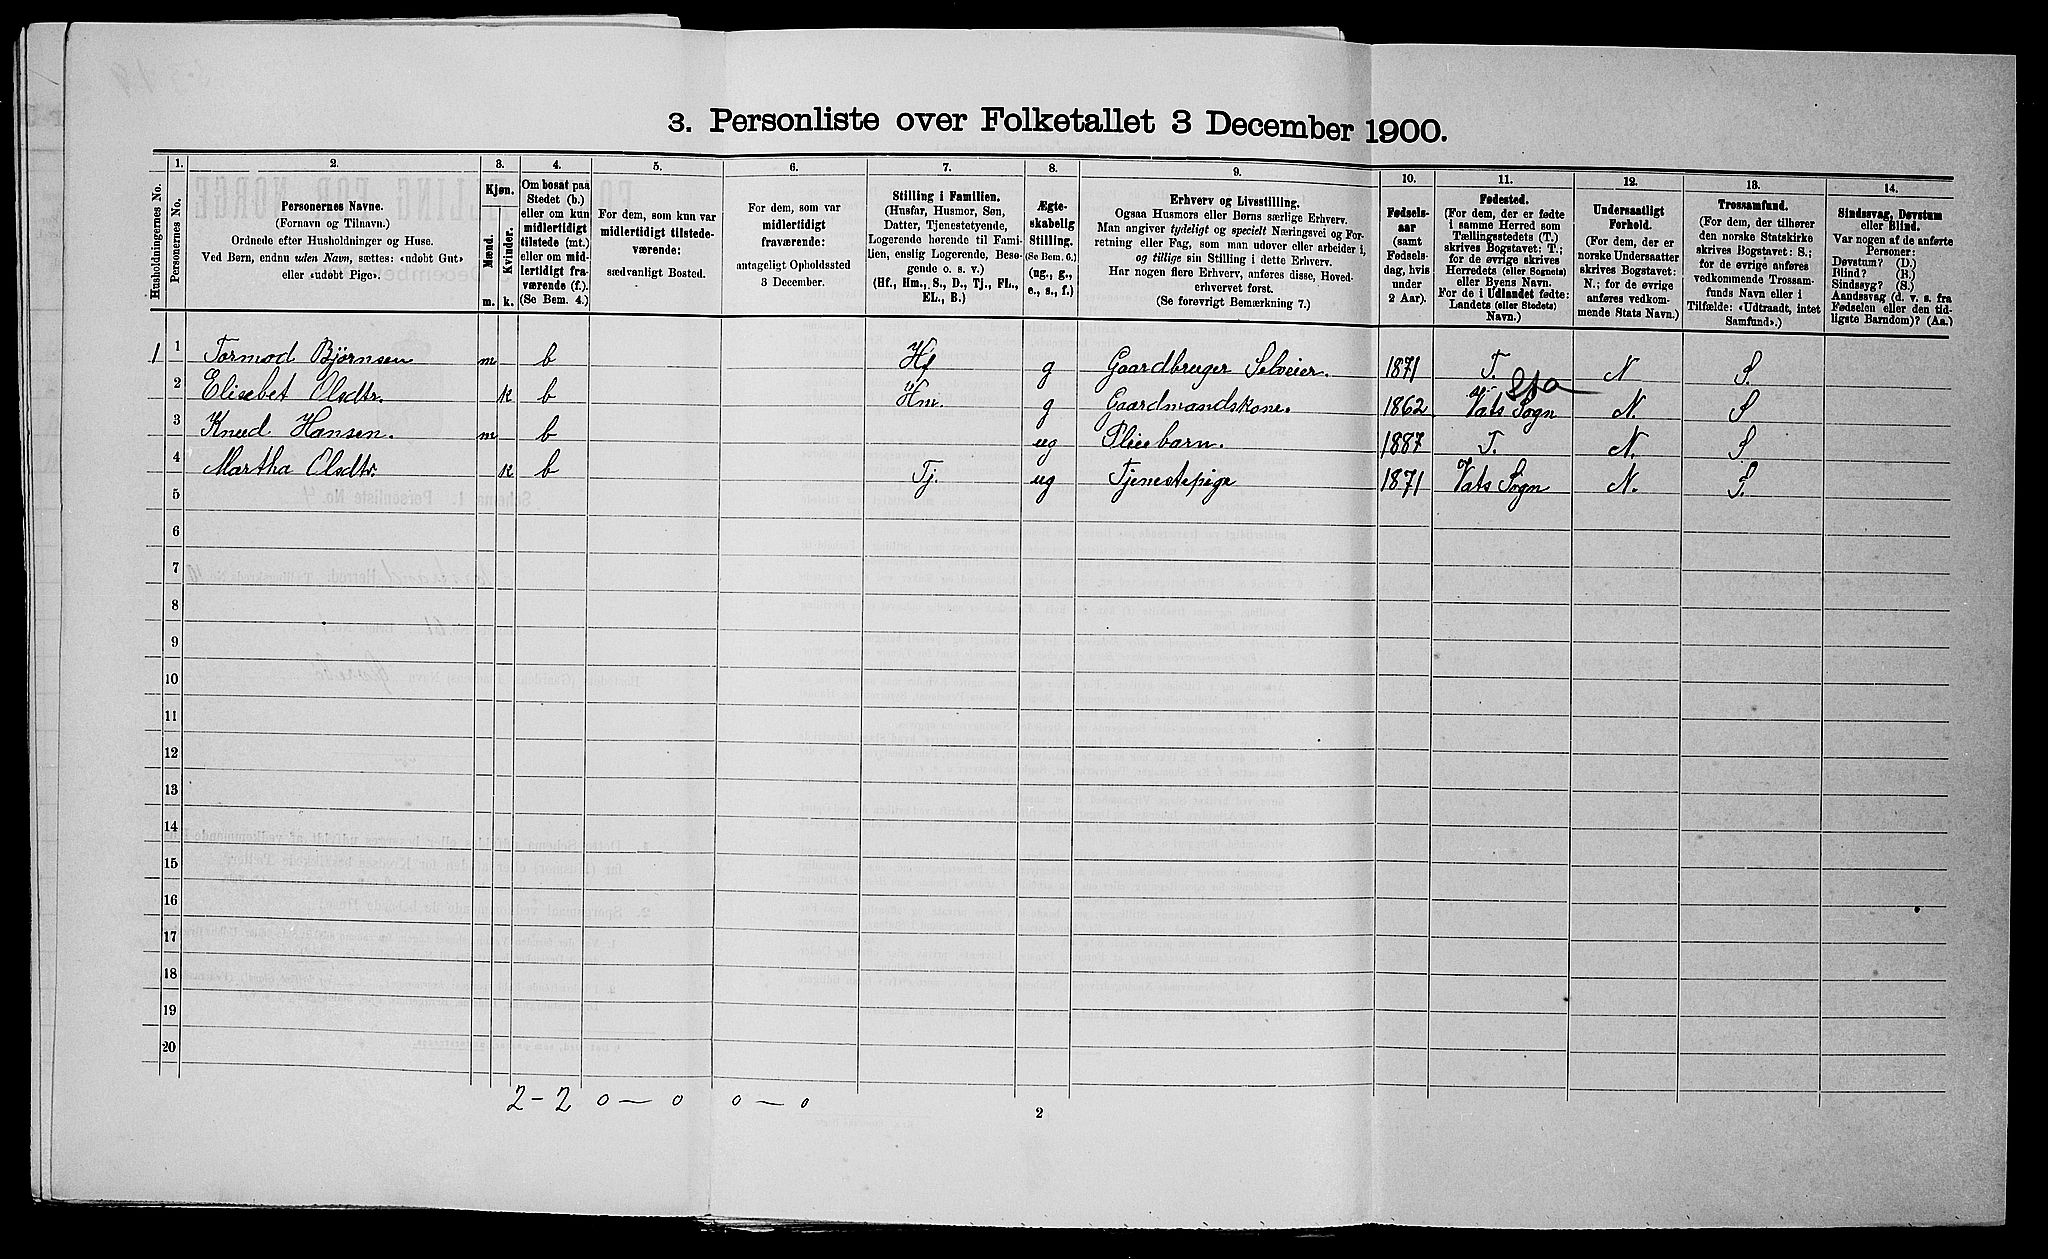 3. Personliste over Folketallet 3 December 1900.
Husholdningernes No.
1.
Personernes No.
2.
Personernes Navne.
(Fornavn og Tilnavn.)
Ordnede efter Husholdninger og Huse.
Ved Børn, endnu uden Navn, sættes: «udøbt Gut»
eller «udøbt Pige».
3.
Kjøn.
Mænd.
Kvinder.
m. k.
4.
Om bosat paa
Stedet (b.)
eller om kun
midlertidigt
tilstede (mt.)
eller om mid-
lertidigt fra-
værende (f.).
(Se Bem. 4.)
5.
For dem, som kun var
midlertidigt tilstede-
værende:
sædvanligt Bosted.
6.
For dem, som var
midlertidigt
fraværende:
antageligt Opholdssted
3 December.
7.
Stilling i Familien.
(Husfar, Husmor, Søn,
Datter, Tjenestetyende,
Logerende hørende til Fami-
lien, enslig Logerende, Besø-
gende o. s. v.)
(Hf., Hm., S., D., Tj., FL.,
EL., B.)
8.
Ægte-
skabelig
Stilling.
(Se Bem. 6.)
(ug., g.,
e., s., f.)
9.
Erhverv og Livsstilling.
Ogsaa Husmors eller Børns særlige Erhverv.
Man angiver tydeligt og specielt Næringsvei og For-
retning eller Fag, som man udøver eller arbeider i,
og tillige sin Stilling i dette Erhverv.
Har nogen flere Erhverv, anføres disse, Hoved-
erhvervet først.
(Se forøvrigt Bemærkning 7.)
10.
Fødsels-
aar
(samt
Fødsels-
dag, hvis
under
2 Aar).
11.
Fødested.
(For dem, der er fødte
i samme Herred som
Tællingsstedets (T.)
skrives Bogstavet: T.;
for de øvrige skrives
Herredets (eller Sognets)
eller Byens Navn.
For de i Udlandet fødte:
Landets (eller Stedets)
Navn.)
12.
Undersaatligt
Forhold.
(For dem, der er
norske Undersaatter
skrives Bogstavet:
N.; for de øvrige
anføres vedkom-
mende Stats Navn.)
13.
Trossamfund.
(For dem, der tilhører
den norske Statskirke
skrives Bogstavet: S.;
for de øvrige anføres
vedkommende Trossam-
funds Navn eller i
Tilfælde: «Udtraadt, intet
Samfund».)
14.
Sindssvag, Døvstum
eller Blind.
Var nogen af de anførte
Personer:
Døvstum? (D.)
Blind? (B.)
Sindssyg? (S.)
Aandssvag (d. v. s. fra
Fødselen eller den tid-
ligste Barndom)? (Aa.)
1 1 Tormod Bjørnsen m b Hf g Gaardbruger Selveier. 1871 T. N S.
2 Elisebet Olsdtr. k b Hm. g Gaardmandskone. 1862 Vats Sogn N. S
3 Knud Hansen. m b ug Pleiebarn. 1887 T. N. S
4 Martha Olsdtr. k b Tj. ug Tjenestepige 1871 Vats Sogn N. S.
5
6
7
8
9
10
11
12
13
14
15
16
17
18
19
20
2 - 2 0 — 0 0 — 0
2